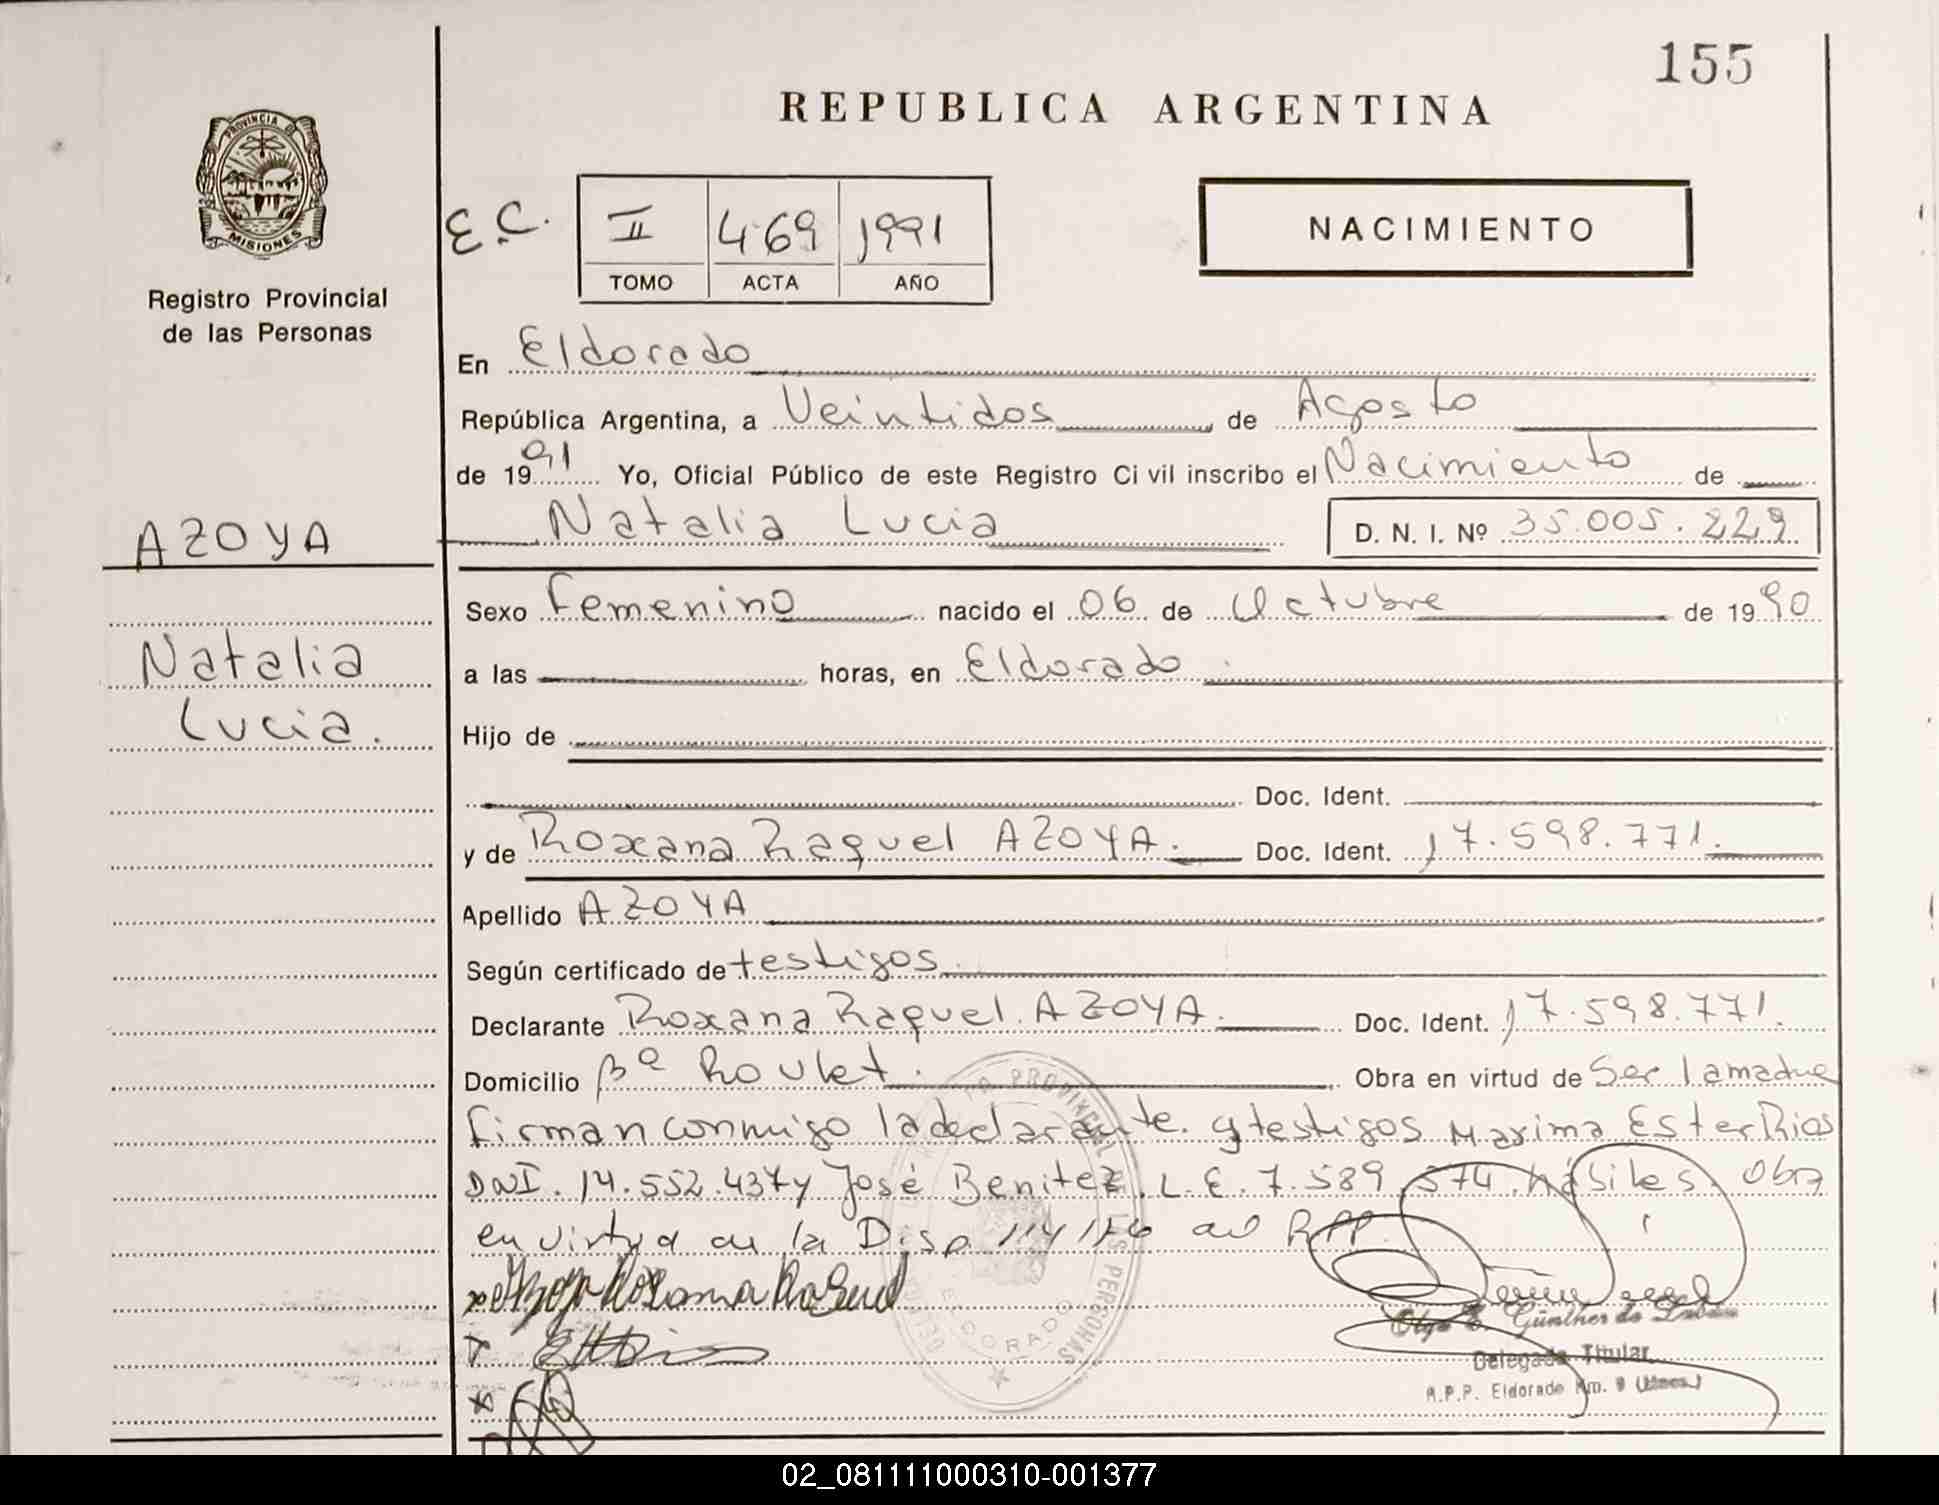 155
REPUBLICA ARGENTINA
PROVINCIA DE
MISIONES
Registro Provincial
de las Personas
E.C.
II 469 1991
TOMO ACTA AÑO
NACIMIENTO
En Eldorado
República Argentina, a Veintidos de Agosto
de 1991 Yo, Oficial Público de este Registro Civil inscribo el Nacimiento de
Natalia Lucia D. N. I. Nº 35.005.229
AZOYA
Natalia
Lucia.
Sexo Femenino nacido el 06 de Octubre de 1990
a las horas, en Eldorado
Hijo de
Doc. Ident.
y de Roxana Raquel AZOYA. Doc. Ident. 17.598.771.
Apellido AZOYA
Según certificado de testigos
Declarante Roxana Raquel AZOYA. Doc. Ident. 17.598.771.
Domicilio Bº Roulet. Obra en virtud de Ser la madre
firman conmigo la declarante. y testigos Maxima Ester Rios
DNI. 14.552.437 y José Benitez L.E. 7.589.574 hábiles. Obra
en virtud de la Disp. 114/76 del RPP.
PROVINCIAL DE LAS PERSONAS
ELDORADO
Olga E. Günther de
Delegada Titular
R.P.P. Eldorado Km. 9 (Mnes.)
02_081111000310-001377